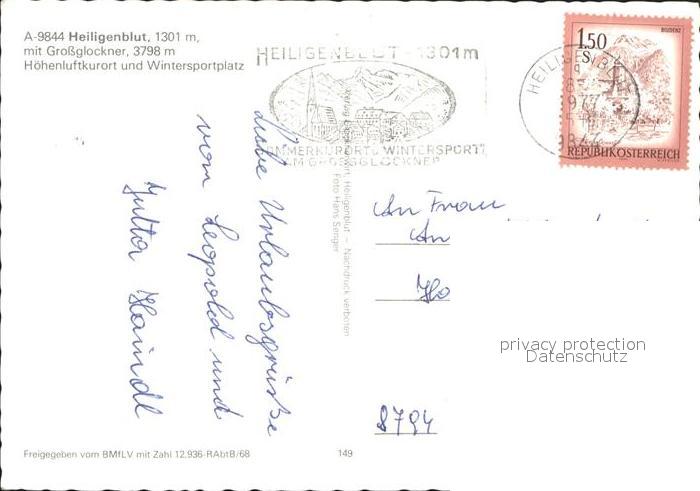 A-9844 Heiligenblut, 1301 m,
mit Großglockner, 3798 m
Höhenluftkurort und Wintersportplatz
HEILIGENBLUT - 1301m
SOMMERKURORT u. WINTERSPORT
AM GROSSGLOCKNER
HEILIGENBLUT
1977
9844
1.50
S
BLUDENZ
REPUBLIK ÖSTERREICH
Liebe Urlaubsgrüße
vom Leopold und
Jutta Haindl
Heiligenblut – Nachdruck verboten
Foto Hans Senger
An Frau
An
Ho
8794
privacy protection
Datenschutz
Freigegeben vom BMfLV mit Zahl 12.936-RAbtB/68
149